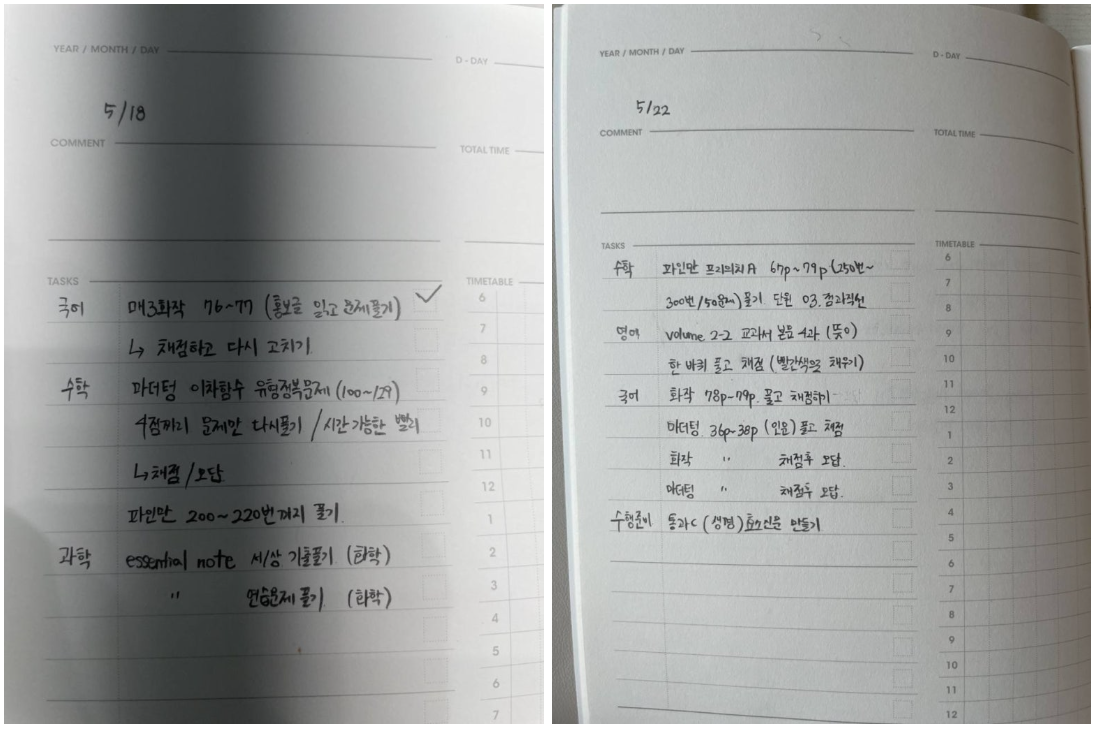 YEAR / MONTH / DAY
D - DAY
5/18
COMMENT
TOTAL TIME
TASKS
TIMETABLE
국어 매3화작 76~77 (홍보글 읽고 문제풀기) ✓
↳ 채점하고 다시 고치기
수학 마더텅 이차함수 유형정복문제 (100~129)
4점짜리 문제만 다시풀기 / 시간 가능한 빨리
↳ 채점/오답
파인만 200~220번까지 풀기.
과학 essential note 서/상 기출풀기 (화학)
" 연습문제 풀기 (화학)
6
7
8
9
10
11
12
1
2
3
4
5
6
7
YEAR / MONTH / DAY
D - DAY
5/22
COMMENT
TOTAL TIME
TASKS
TIMETABLE
수학 파인만 프리의치A 67p~79p (250번~
300번/50문제) 풀기 단원 03. 점과직선
영어 volume. 2-2 교과서 본문 4과 (뜻이)
한 바퀴 풀고 채점 (빨간색으로 채우기)
국어 화작 78p~79p. 풀고 채점하기
마더텅. 36p~38p (인문) 풀고 채점
화작 " 채점후 오답.
마더텅 " 채점후 오답.
수행준비 통과C (생명) 만들기
6
7
8
9
10
11
12
1
2
3
4
5
6
7
8
9
10
11
12